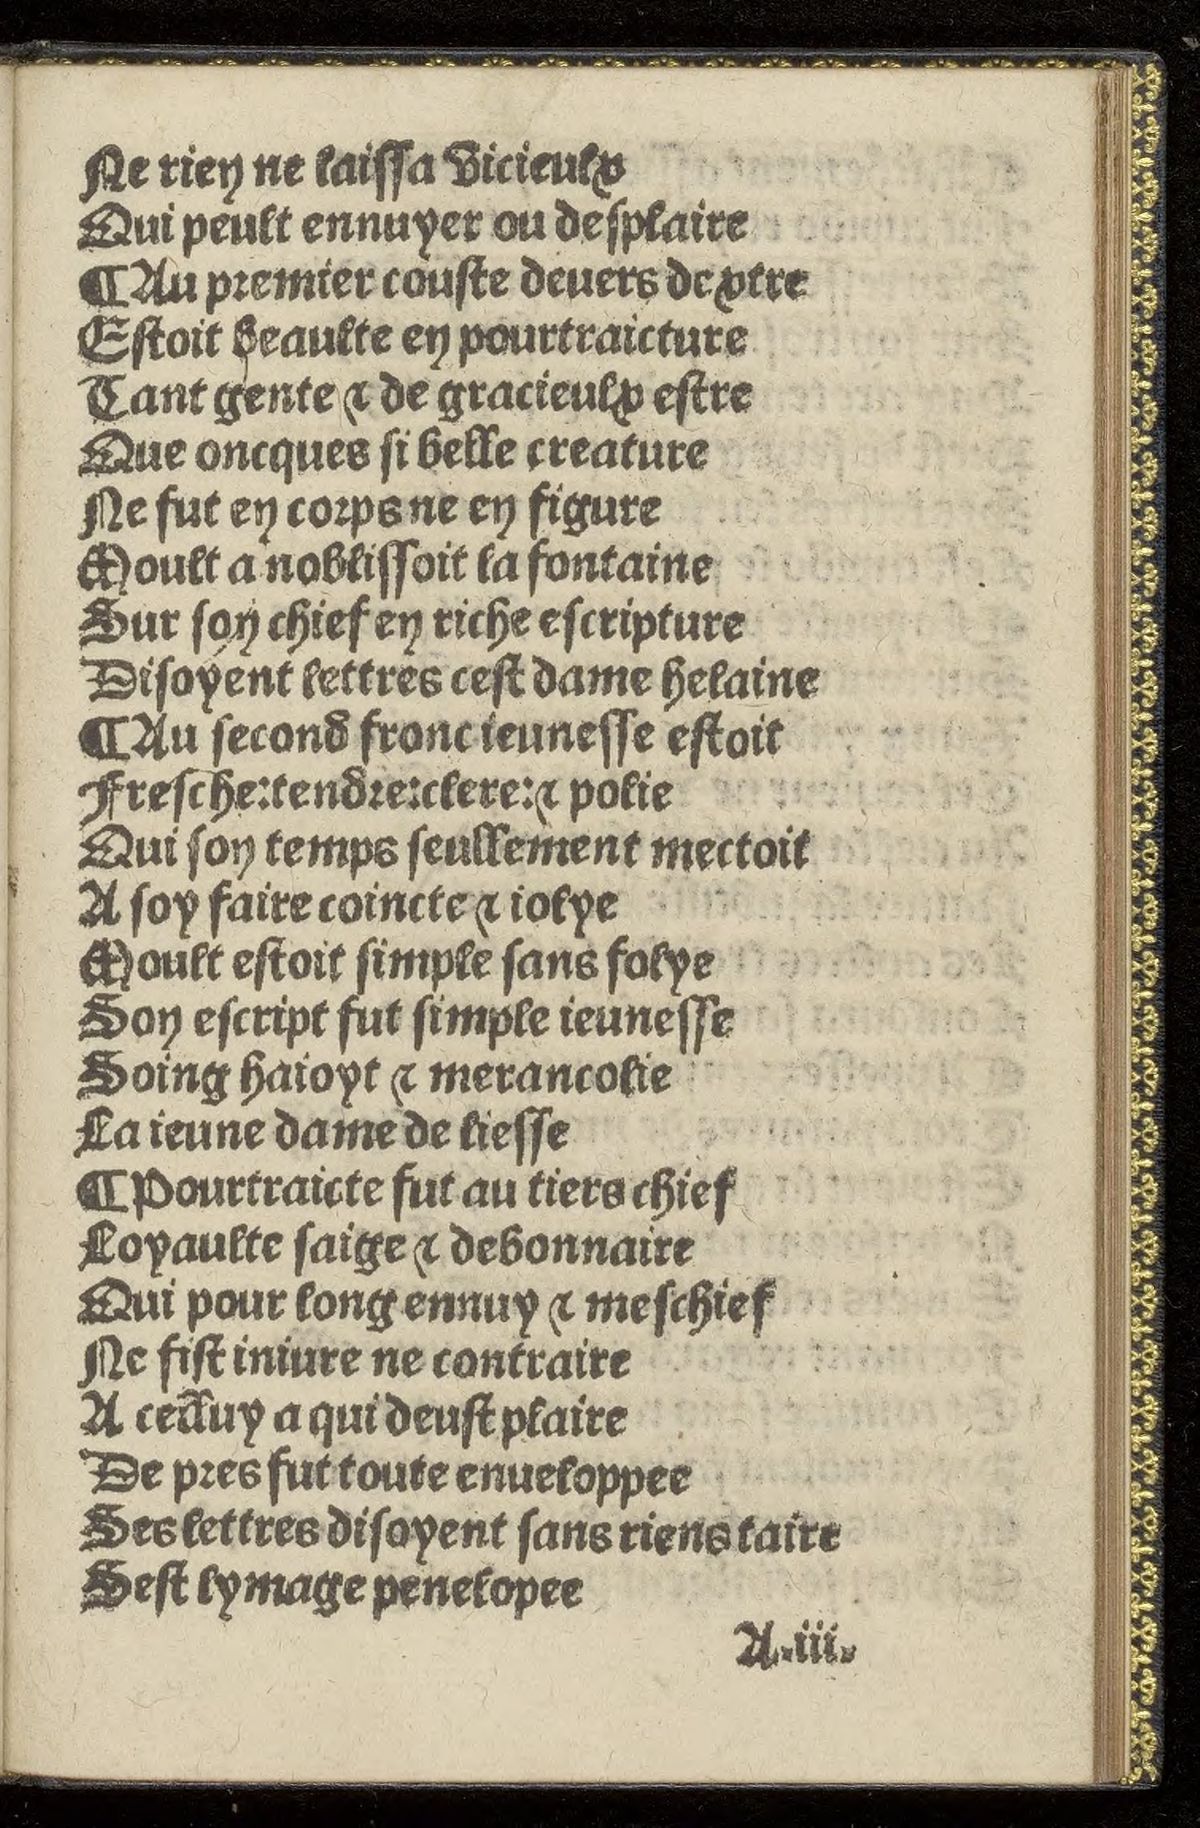 Ne rien ne laissa vicieulx
Qui peult ennuyer ou desplaire
¶Au premier couste deuers dextre
Estoit beaulte en pourtraicture
Tant gente ⁊ de gracieulx estre
Que oncques si belle creature
Ne fut en corps ne en figure
Moult a noblissoit la fontaine
Sur son chief en riche escripture
Disoyent lettres cest dame helaine
¶Au second fronc ieunesse estoit
Fresche:tendre:clere:⁊ polie
Qui son temps seullement mectoit
A soy faire coincte ⁊ iolye
Moult estoit simple sans folye
Son escript fut simple ieunesse
Soing haioyt ⁊ merancolie
La ieune dame de liesse
¶Pourtraicte fut au tiers chief
Loyaulte saige ⁊ debonnaire
Qui pour long ennuy ⁊ meschief
Ne fist iniure ne contraire
A celluy a qui deust plaire
De pres fut toute enueloppee
Ses lettres disoyent sans riens taire
Sest lymage penelopee
A.iii.